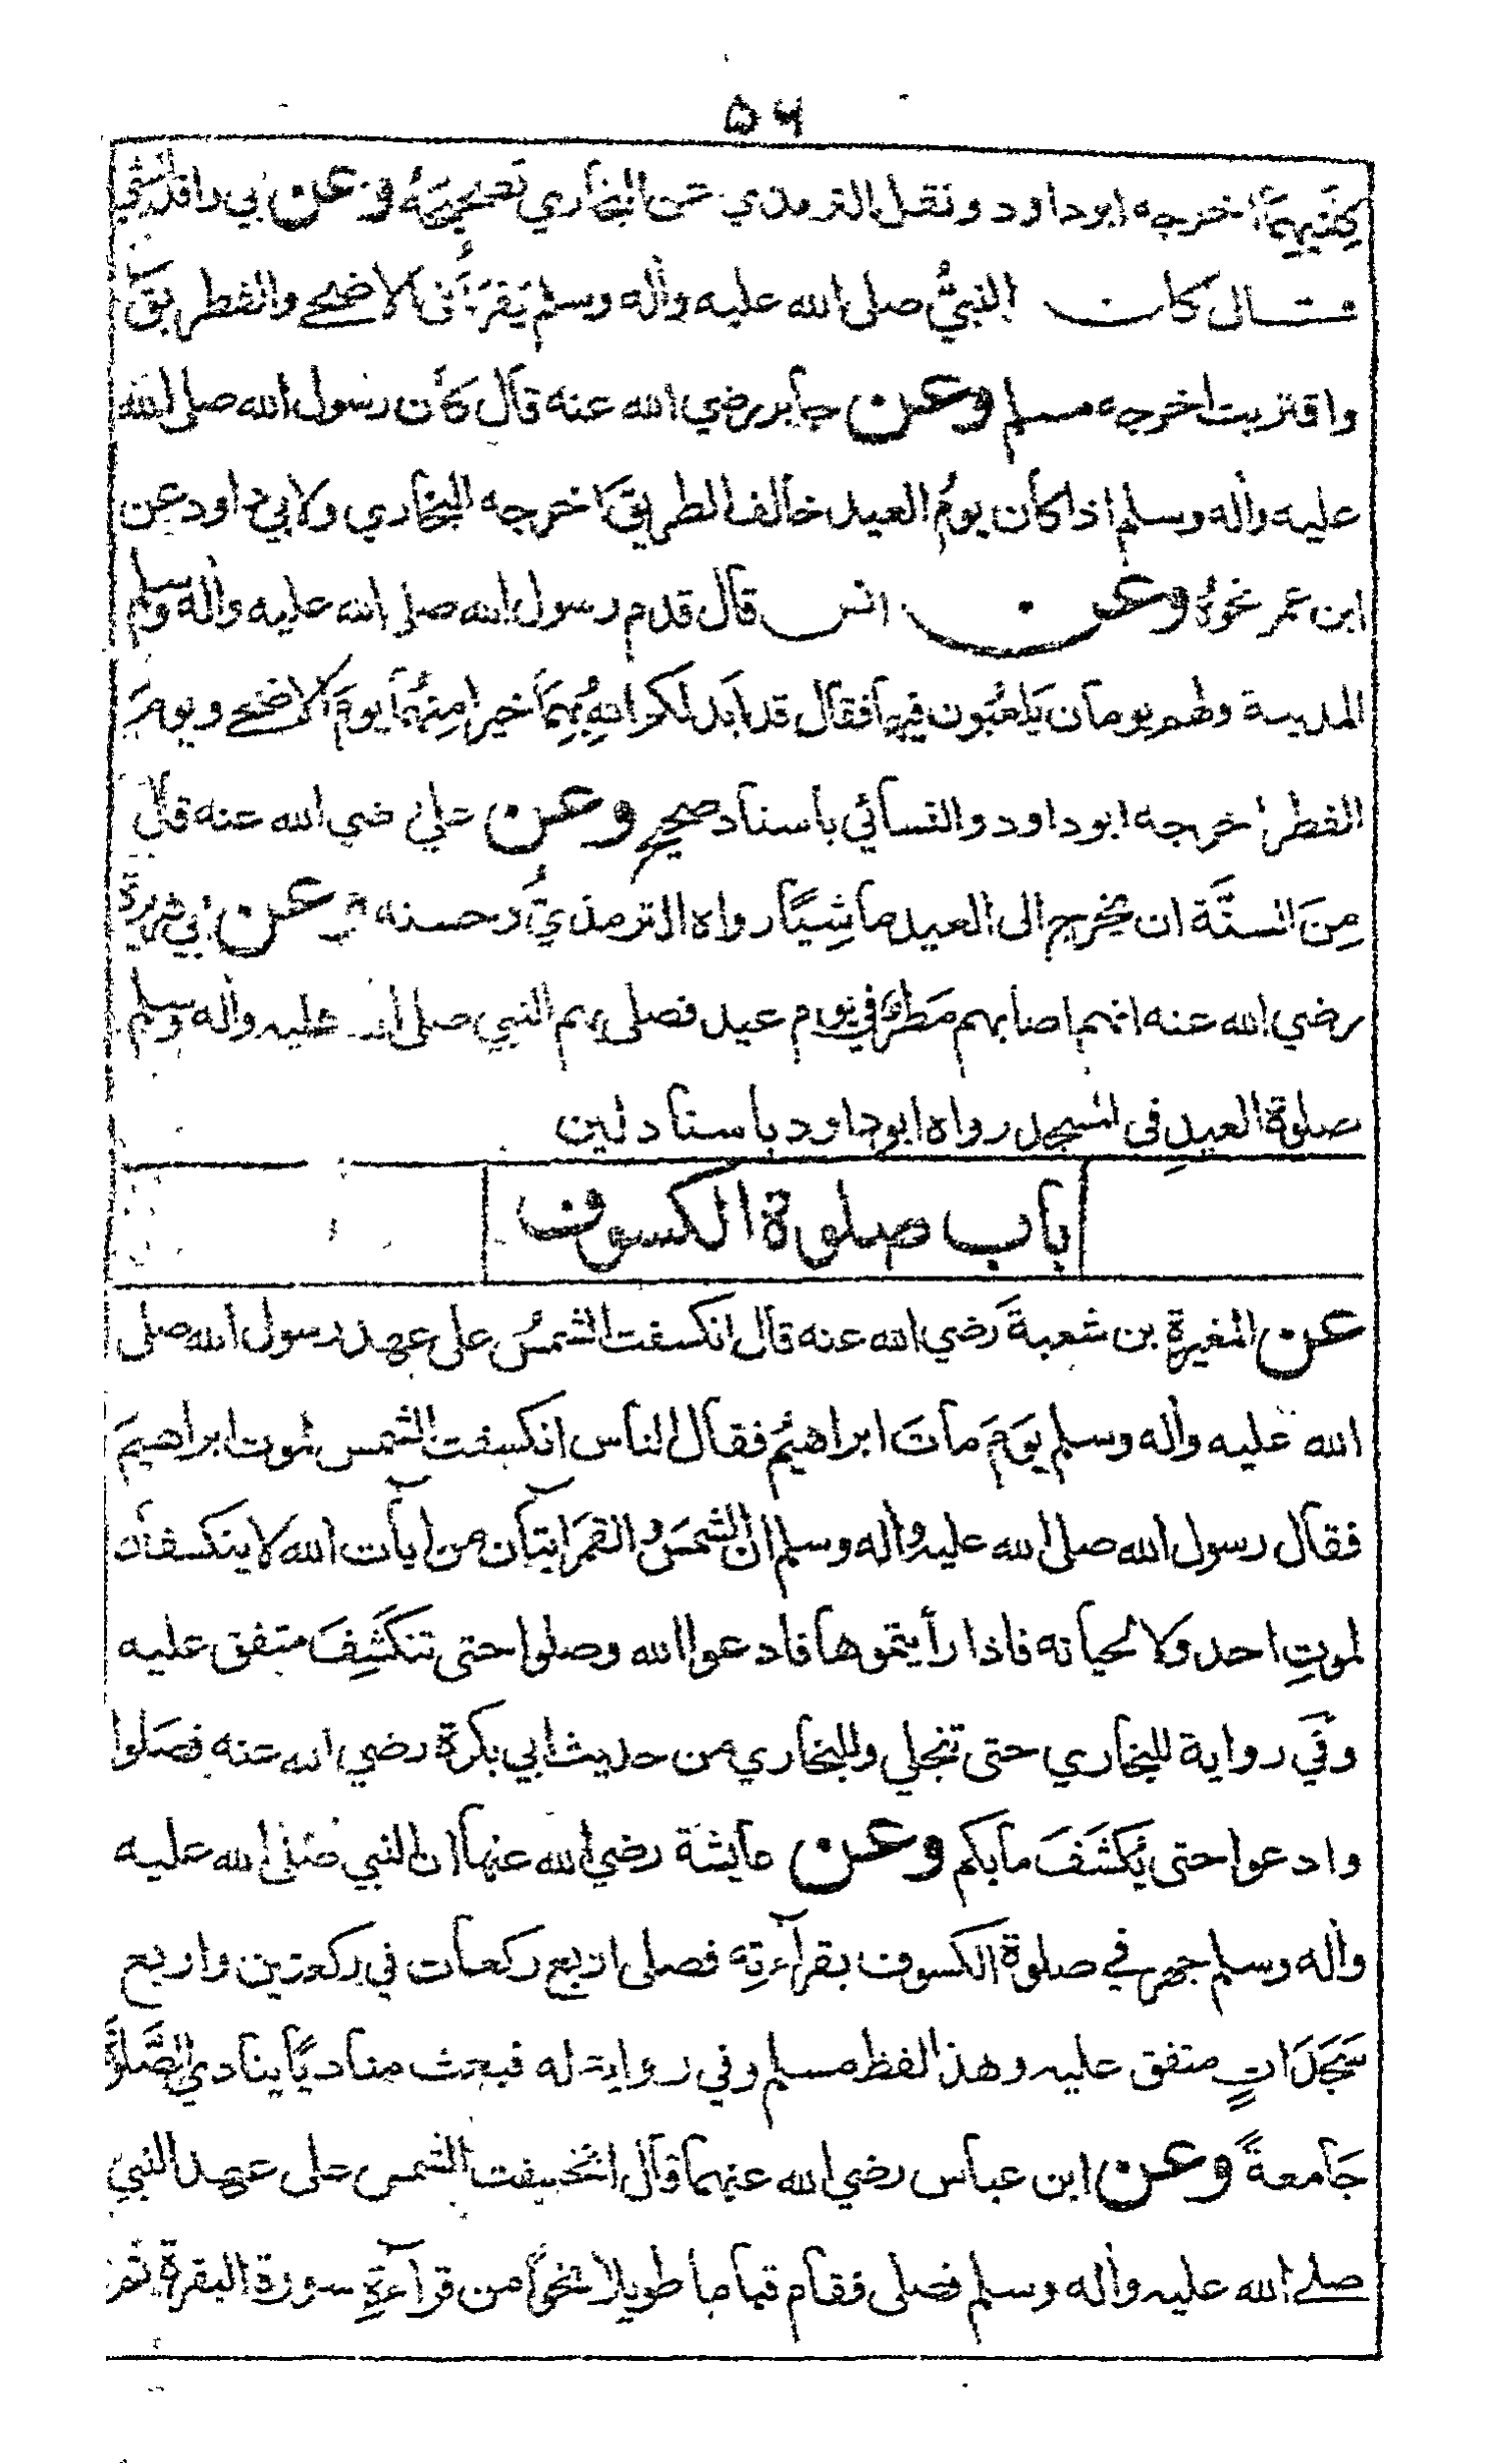 ٥٦
كِلتَيهِمَا اخرجه ابوداود ونقل الترمذي عن البخاري تصحيحَهُ وعن ابي واقد الليثي
قال كان النبيُّ صلى الله عليه واٰله وسلم يَقرَأُ فى الاضحے والفطر بقٓ
واقتربت اخرجه مسلم وعن جابر رضي الله عنه قال كان رسول الله صلى الله
عليه واٰله وسلم اذا كان يومُ العيد خالف الطريقَ اخرجه البخاري ولابي داود عن
ابن عمر نحوُهُ وعن انس قال قدم رسول الله صلى الله عليه واٰله وسلم
المدينة ولهم يومان يَلعَبُون فيهما فقال قد ابدلكم اللهُ بِهِمَا خيرا مِنهُمَا يومَ الاضحے ويومَ
الفطر اخرجه ابوداود والنسائي باسناد صحيحٍ وعن علي رضي الله عنه قال
مِنَ السنَّة ان يخرج الى العيد ماشِيًا رواه الترمذيُّ وحسنه وعن ابي هريرة
رضي الله عنه انهم اصابهم مَطَرٌ في يوم عيد فصلى بهم النبي صلى الله عليه واٰله وسلم
صلوة العيدِ فى المسجد رواه ابوداود باسناد لين
باب صلوة الكسوف
عن المغيرةِ بن شعبةَ رضي الله عنه قال انكسفت الشمسُ على عهد رسول الله صلى
الله عليه واٰله وسلم يومَ ماتَ ابراهيمُ فقال الناس انكسفت الشمس لموت ابراهيمَ
فقال رسول الله صلى الله عليه واٰله وسلم ان الشمسَ والقمرَ اٰيتان من اٰيات الله لا ينكسفان
لموتِ احد ولا لحياته فاذا رأيتموها فادعوا الله وصلوا حتى تنكَشِفَ متفق عليه
وفي رواية للبخاري حتى تنجلي وللبخاري من حديث ابي بكرة رضي الله عنه فصَلوا
وادعوا حتى يُكشَفَ مابكم وعن عايشة رضي الله عنها ان النبي صلى الله عليه
واٰله وسلم جهر في صلوة الكسوف بقراٰءتِه فصلى اربع ركعات في ركعتين واربع
سَجَدَاتٍ متفق عليه وهذا لفظ مسلم وفي رواية له فبعث مناديًا ينادي الصَّلوةَ
جَامعةً وعن ابن عباس رضي الله عنهما قال انخسفت الشمس على عهد النبي
صلے الله عليه واٰله وسلم فصلى فقام قياما طويلا نحوًا من قراٰءةِ سورة البقرة ثم